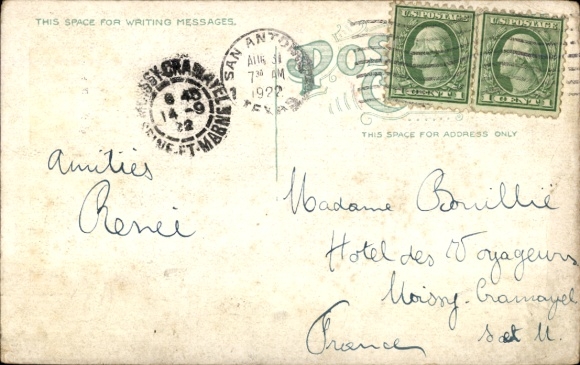 THIS SPACE FOR WRITING MESSAGES.
SAN ANTONIO
AUG 31
7 30 AM
1922
TEXAS
MOISSY-CRAMAYEL
6 45
14 -9
22
SEINE-ET-MARNE
U.S. POSTAGE
1 CENT 1
U.S. POSTAGE
1 CENT 1
THIS SPACE FOR ADDRESS ONLY
Amitiés
Renée
Madame Bouillié
Hotel des Voyageurs
Moissy-Cramayel
S et M.
France